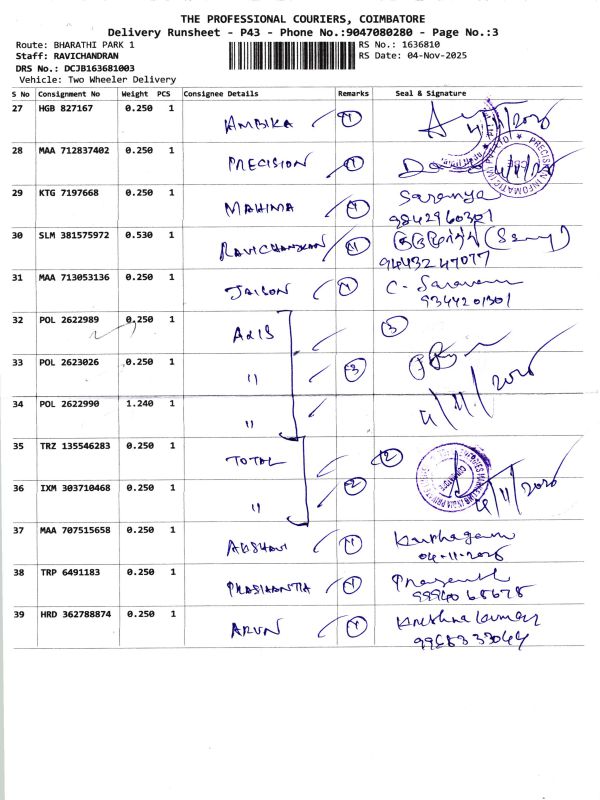 THE PROFESSIONAL COURIERS, COIMBATORE
Delivery Runsheet - P43 - Phone No.:9047080280 - Page No.:3
Route: BHARATHI PARK 1
RS No.: 1636810
Staff: RAVICHANDRAN
RS Date: 04-Nov-2025
DRS No.: DCJB163681003
Vehicle: Two Wheeler Delivery
S No Consignment No Weight PCS Consignee Details Remarks Seal & Signature
27 HGB 827167 0.250 1 AMBIKA 1
28 MAA 712837402 0.250 1 PRECISION 1
29 KTG 7197668 0.250 1 MAHIMA 1 Saranya
9842960321
30 SLM 381575972 0.530 1 RAVICHANDRAN 1
9443247077
31 MAA 713053136 0.250 1 JAISON 1 C. Saravanan
9344201301
32 POL 2622989 0.250 1 AXIS 3
33 POL 2623026 0.250 1 " 3
34 POL 2622990 1.240 1 " 4/11/2025
35 TRZ 135546283 0.250 1 TOTAL 2
36 IXM 303710468 0.250 1 " 2 4/11/2025
37 MAA 707515658 0.250 1 1 Karthagam
04-11-2025
38 TRP 6491183 0.250 1 PRASHANTH 1 Prasanth
9994068678
39 HRD 362788874 0.250 1 ARUN 1 Krishna Kumar
9968333064